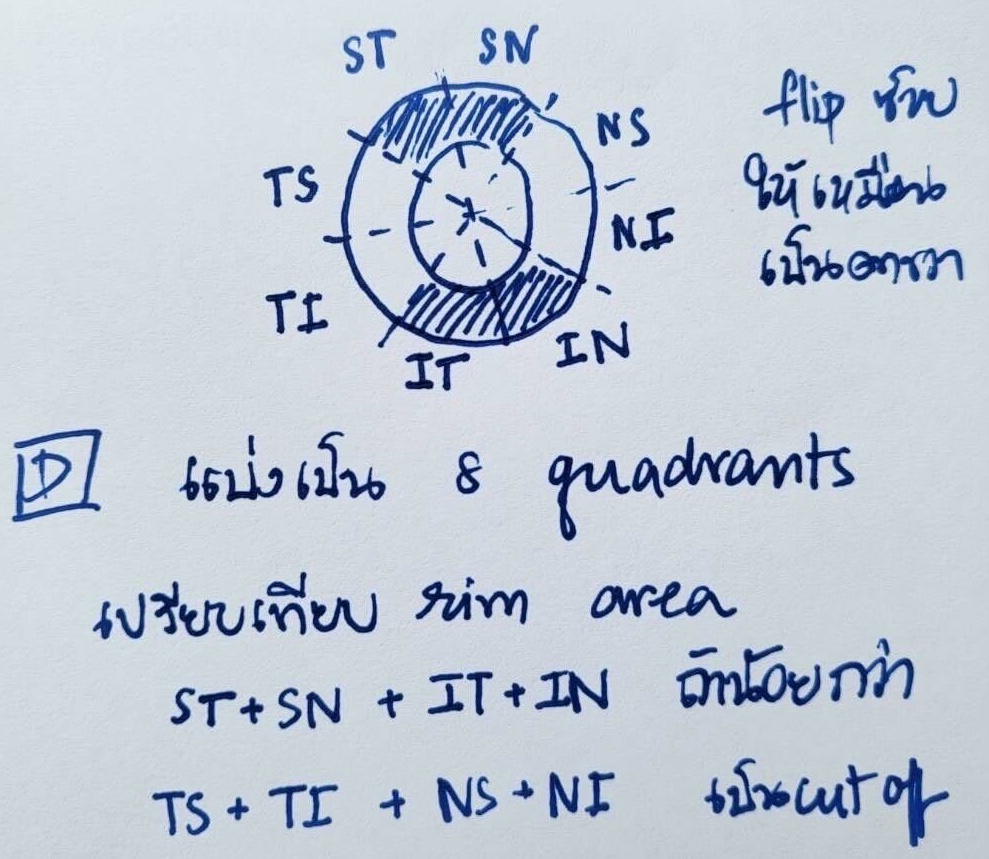 ST SN
NS
TS
NI
TI
IT IN
flip ซ้าย
ให้เหมือน
เป็นตาขวา
D แบ่งเป็น 8 quadrants
เปรียบเทียบ rim area
ST + SN + IT + IN ถ้าน้อยกว่า
TS + TI + NS + NI เป็น cut off